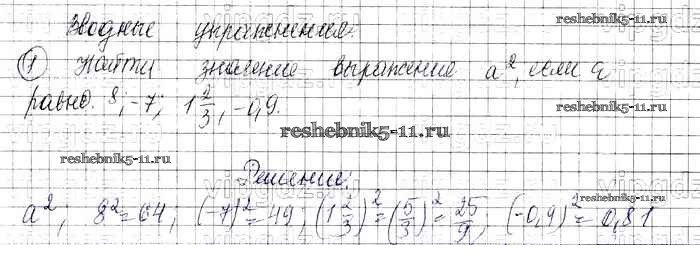 Вводные упражнения.
reshebnik5-11.ru
① Найти значение выражения a², если a
равно. 8; -7; 1 2/3; -0,9.
reshebnik5-11.ru
reshebnik5-11.ru
reshebnik5-11.ru
reshebnik5-11.ru
Решение:
a²; 8²=64; (-7)²=49; (1 2/3)²=(5/3)²=25/9; (-0,9)²=0,81